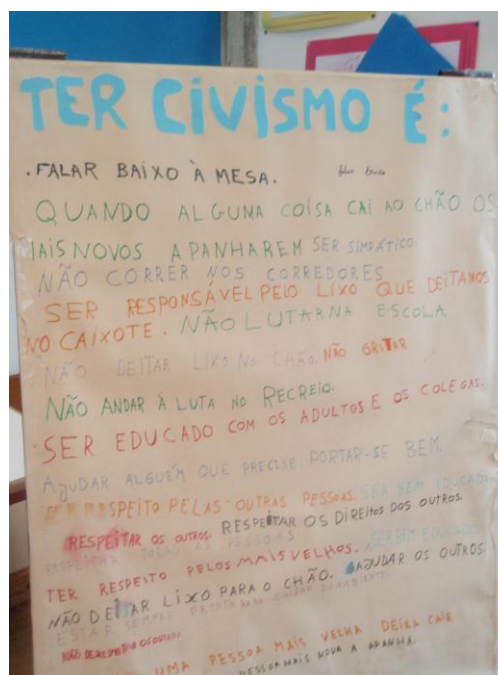 TER CIVISMO É:
. FALAR BAIXO À MESA.
QUANDO ALGUMA COISA CAI AO CHÃO OS
MAIS NOVOS APANHAREM SER SIMPÁTICO.
NÃO CORRER NOS CORREDORES
SER RESPONSÁVEL PELO LIXO QUE DEITAMOS
NO CAIXOTE. NÃO LUTAR NA ESCOLA
NÃO DEITAR LIXO NO CHÃO. NÃO GRITAR
NÃO ANDAR À LUTA NO RECREIO.
. SER EDUCADO COM OS ADULTOS E OS COLEGAS.
AJUDAR ALGUÉM QUE PRECISE. PORTAR-SE BEM.
TER RESPEITO PELAS OUTRAS PESSOAS. SER BEM EDUCADO
RESPEITAR OS OUTROS. RESPEITAR OS DIREITOS DOS OUTROS.
RESPEITAR TODAS AS PESSOAS
TER RESPEITO PELOS MAIS VELHOS. SER BEM EDUCADO
NÃO DEITAR LIXO PARA O CHÃO. AJUDAR OS OUTROS
ESTAR SEMPRE PRONTO PARA
UMA PESSOA MAIS VELHA DEIXA CAIR
PESSOA MAIS NOVA A APANHA.